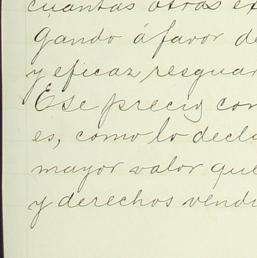 cuantas otras ex
gando á favor de
y eficaz resguar
Ese precio con
es, como lo decla
mayor valor que
y derechos vendi